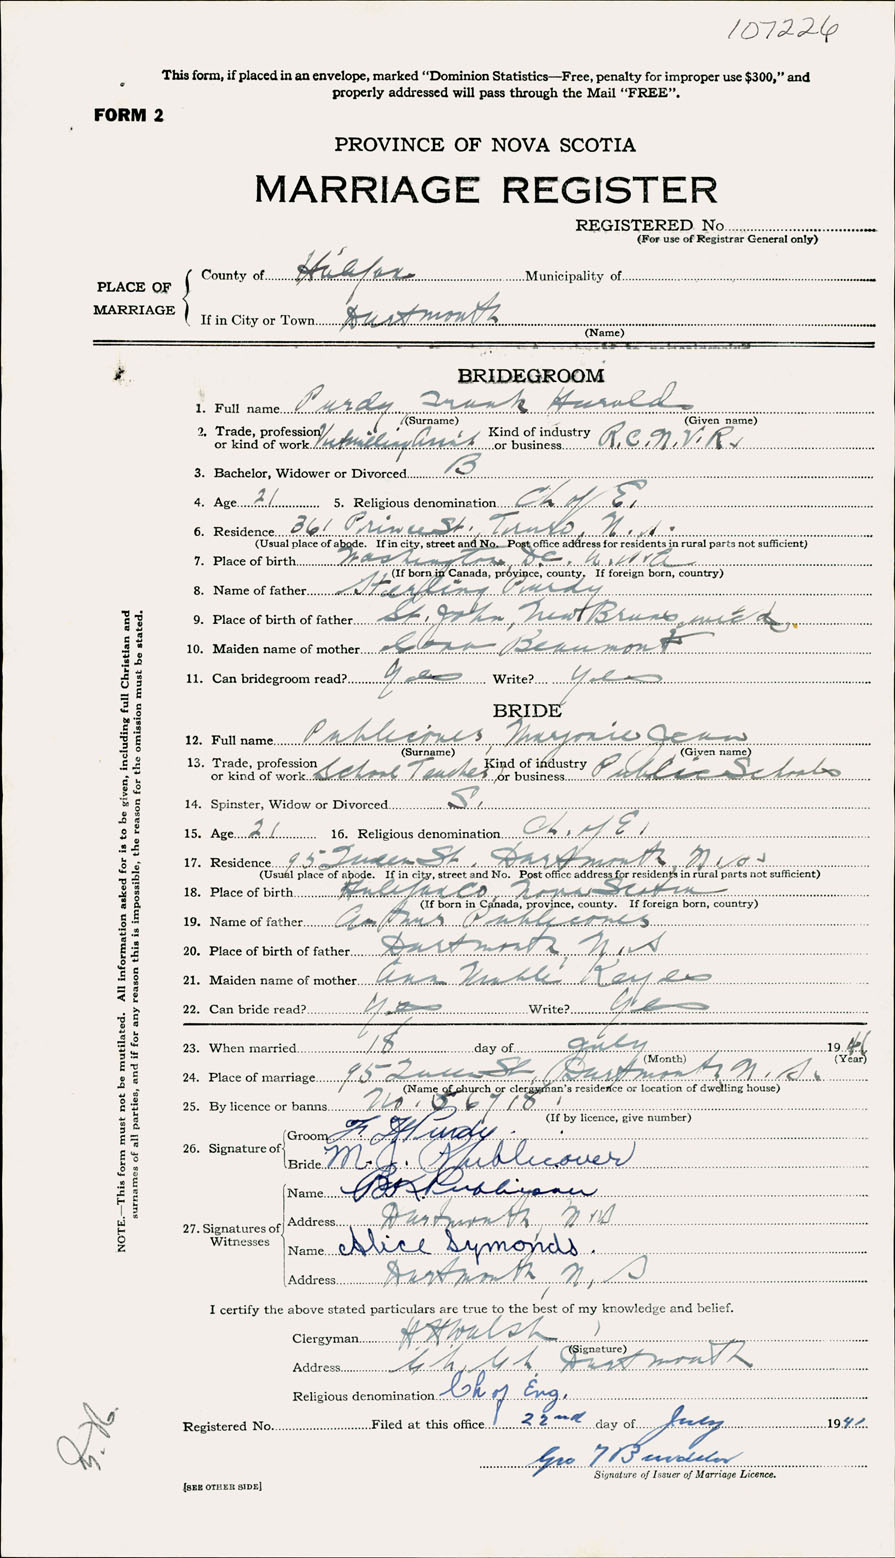 107226
This form, if placed in an envelope, marked "Dominion Statistics—Free, penalty for improper use $300," and
properly addressed will pass through the Mail "FREE".
FORM 2
PROVINCE OF NOVA SCOTIA
MARRIAGE REGISTER
REGISTERED No
(For use of Registrar General only)
PLACE OF MARRIAGE
County of Halifax Municipality of
If in City or Town Dartmouth
(Name)
BRIDEGROOM
1. Full name Purdy Frank Harold
(Surname) (Given name)
2. Trade, profession or kind of work Victualling Assis't Kind of industry or business R.C.N.V.R.
3. Bachelor, Widower or Divorced B
4. Age 21 5. Religious denomination Ch of E.
6. Residence 361 Prince St. Truro, N.S.
(Usual place of abode. If in city, street and No. Post office address for residents in rural parts not sufficient)
7. Place of birth Washington, D.C. U.S.A
(If born in Canada, province, county. If foreign born, country)
8. Name of father Sterling Purdy
9. Place of birth of father St. John, New Brunswick
10. Maiden name of mother Beaumont
11. Can bridegroom read? Yes Write? Yes
BRIDE
12. Full name Publicover, Marjorie Jean
(Surname) (Given name)
13. Trade, profession or kind of work School Teacher Kind of industry or business Public Schools
14. Spinster, Widow or Divorced S.
15. Age 21 16. Religious denomination Ch. of E.
17. Residence 95 Queen St. Dartmouth, N.S.
(Usual place of abode. If in city, street and No. Post office address for residents in rural parts not sufficient)
18. Place of birth Halifax Co, Nova Scotia
(If born in Canada, province, county. If foreign born, country)
19. Name of father Arthur Publicover
20. Place of birth of father Dartmouth, N.S
21. Maiden name of mother Ann Keyes
22. Can bride read? Yes Write? Yes
23. When married 18 day of July 1941
(Month) (Year)
24. Place of marriage 95 Queen St, Dartmouth, N.S.
(Name of church or clergyman's residence or location of dwelling house)
25. By licence or banns No. 56718
(If by licence, give number)
26. Signature of
Groom F H Purdy
Bride M. J. Publicover
27. Signatures of Witnesses
Name
Address Dartmouth, N.S
Name Alice Symonds.
Address Dartmouth, N, S
I certify the above stated particulars are true to the best of my knowledge and belief.
Clergyman H H Walsh
(Signature)
Address Dartmouth
Religious denomination Ch of Eng.
Registered No. Filed at this office 22nd day of July 1941
Geo
Signature of Issuer of Marriage Licence.
[SEE OTHER SIDE]
NOTE.—This form must not be mutilated. All information asked for is to be given, including full Christian and
surnames of all parties, and if for any reason this is impossible, the reason for the omission must be stated.